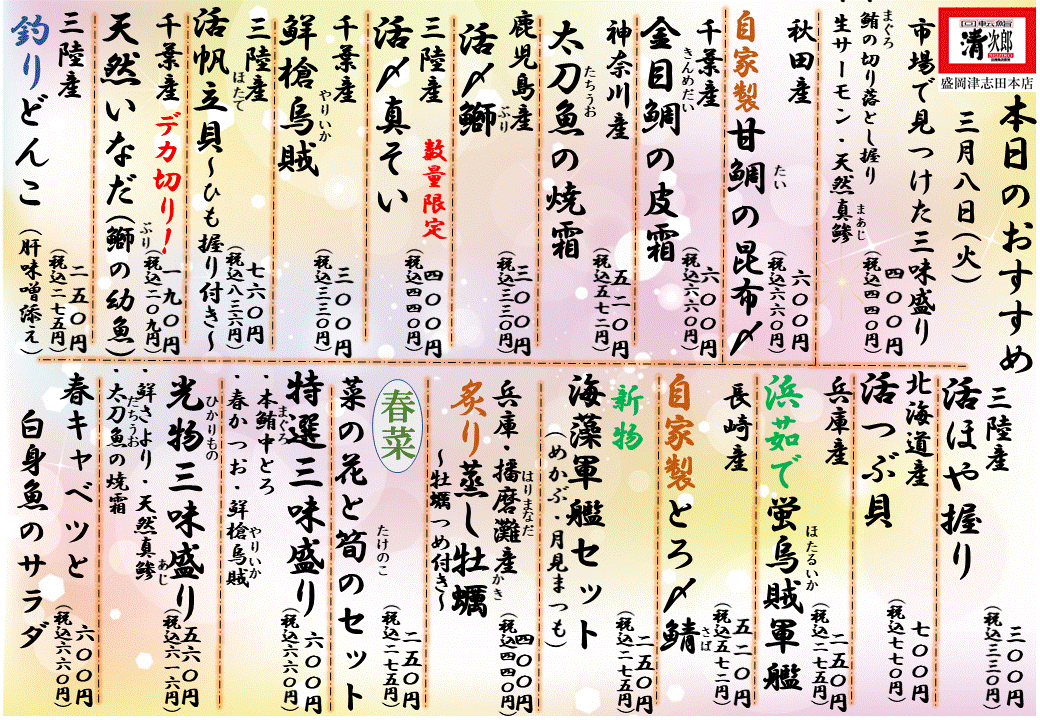 回転鮨
清次郎
盛岡津志田本店
本日のおすすめ
三月八日(火)
市場で見つけた三味盛り
・鮪の切り落とし握り
まぐろ
・生サーモン・天然真鯵
まあじ
四〇〇円
(税込四四〇円)
秋田産
自家製甘鯛の昆布〆
たい
六〇〇円
(税込六六〇円)
千葉産
金目鯛の皮霜
きんめだい
六〇〇円
(税込六六〇円)
神奈川産
太刀魚の焼霜
たちうお
五二〇円
(税込五七二円)
鹿児島産
活〆鰤
ぶり
三〇〇円
(税込三三〇円)
三陸産
数量限定
活〆真そい
四〇〇円
(税込四四〇円)
千葉産
鮮槍烏賊
やりいか
三〇〇円
(税込三三〇円)
三陸産
活帆立貝~ひも握り付き~
ほたて
七六〇円
(税込八三六円)
千葉産
デカ切り!
天然いなだ(鰤の幼魚)
ぶり
一九〇円
(税込二〇九円)
三陸産
釣りどんこ
(肝味噌添え)
二五〇円
(税込二七五円)
三陸産
活ほや握り
三〇〇円
(税込三三〇円)
北海道産
活つぶ貝
七〇〇円
(税込七七〇円)
兵庫産
浜茹で蛍烏賊軍艦
ほたるいか
二五〇円
(税込二七五円)
長崎産
自家製とろ〆鯖
さば
五二〇円
(税込五七二円)
新物
海藻軍艦セット
(めかぶ・月見まつも)
二五〇円
(税込二七五円)
兵庫・播磨灘産
はりまなだ
炙り蒸し牡蠣
かき
~牡蠣つめ付き~
四〇〇円
(税込四四〇円)
春菜
菜の花と筍のセット
たけのこ
二五〇円
(税込二七五円)
特選三味盛り
・本鮪中とろ
まぐろ
・春かつお・鮮槍烏賊
やりいか
六〇〇円
(税込六六〇円)
光物三味盛り
ひかりもの
・鮮さより・天然真鯵
あじ
・太刀魚の焼霜
たちうお
五六〇円
(税込六一六円)
春キャベツと
白身魚のサラダ
六〇〇円
(税込六六〇円)